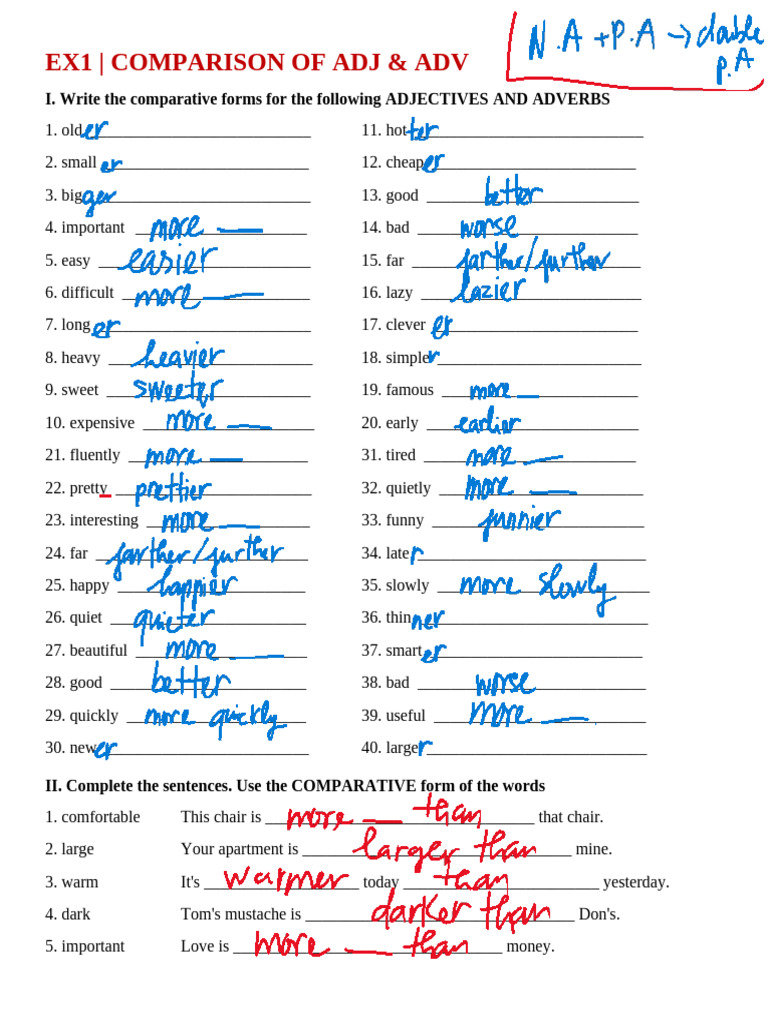 N.A + P.A → double
P.A
EX1 | COMPARISON OF ADJ & ADV
I. Write the comparative forms for the following ADJECTIVES AND ADVERBS
1. older
11. hotter
2. small er
12. cheaper
3. bigger
13. good better
4. important more ___
14. bad worse
5. easy easier
15. far farther/further
6. difficult more ___
16. lazy lazier
7. longer
17. clever er
8. heavy heavier
18. simpler
9. sweet sweeter
19. famous more ___
10. expensive more ___
20. early earlier
21. fluently more ___
31. tired more ___
22. pretty prettier
32. quietly more ___
23. interesting more ___
33. funny funnier
24. far farther/further
34. later
25. happy happier
35. slowly more slowly
26. quiet quieter
36. thinner
27. beautiful more ___
37. smarter
28. good better
38. bad worse
29. quickly more quickly
39. useful more ___
30. newer
40. larger
II. Complete the sentences. Use the COMPARATIVE form of the words
1. comfortable This chair is more ___ than that chair.
2. large Your apartment is larger than mine.
3. warm It's warmer today than yesterday.
4. dark Tom's mustache is darker than Don's.
5. important Love is more ___ than money.